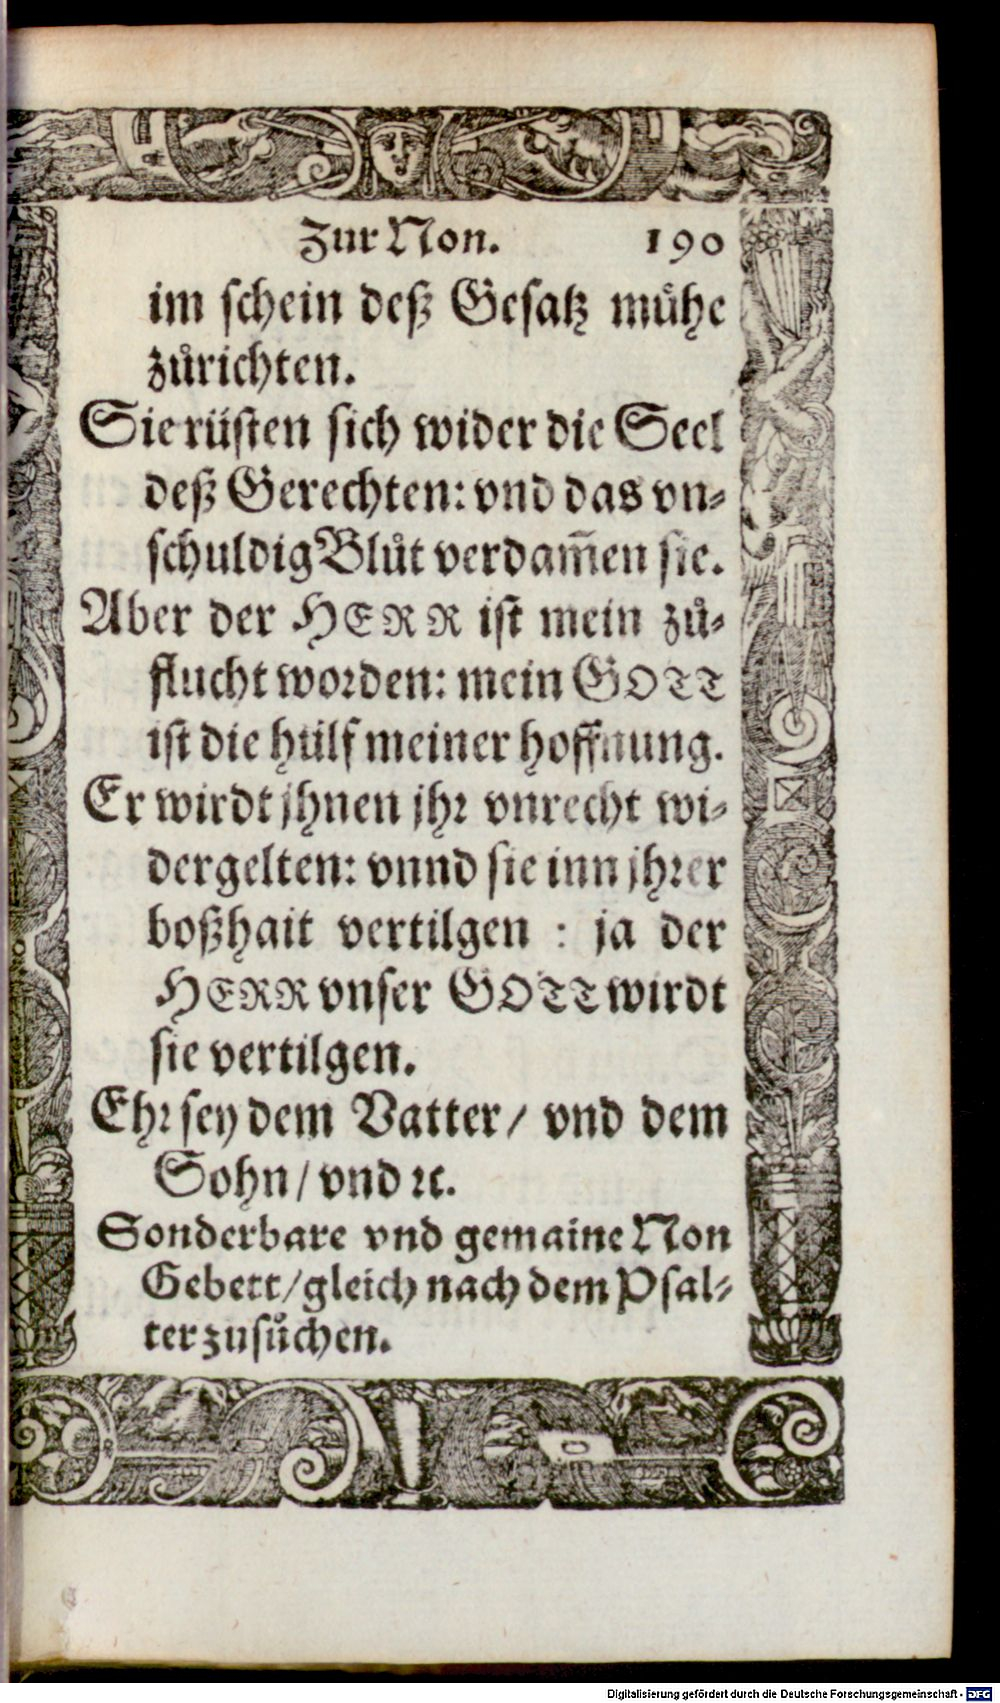 Zur Non. 190
im schein deß Gesatz mühe
zůrichten.
Sie rüsten sich wider die Seel
deß Gerechten: vnd das vn-
schuldig Blůt verdam̄en sie.
Aber der HERR ist mein zů-
flucht worden: mein GOTT
ist die hülf meiner hoffnung.
Er wirdt jhnen jhr vnrecht wi-
dergelten: vnnd sie inn jhrer
boßhait vertilgen : ja der
HERR vnser GOTT wirdt
sie vertilgen.
Ehr sey dem Vatter/ vnd dem
Sohn/ vnd ꝛc.
Sonderbare vnd gemaine Non
Gebett/ gleich nach dem Psal-
ter zusůchen.
Digitalisierung gefördert durch die Deutsche Forschungsgemeinschaft - DFG